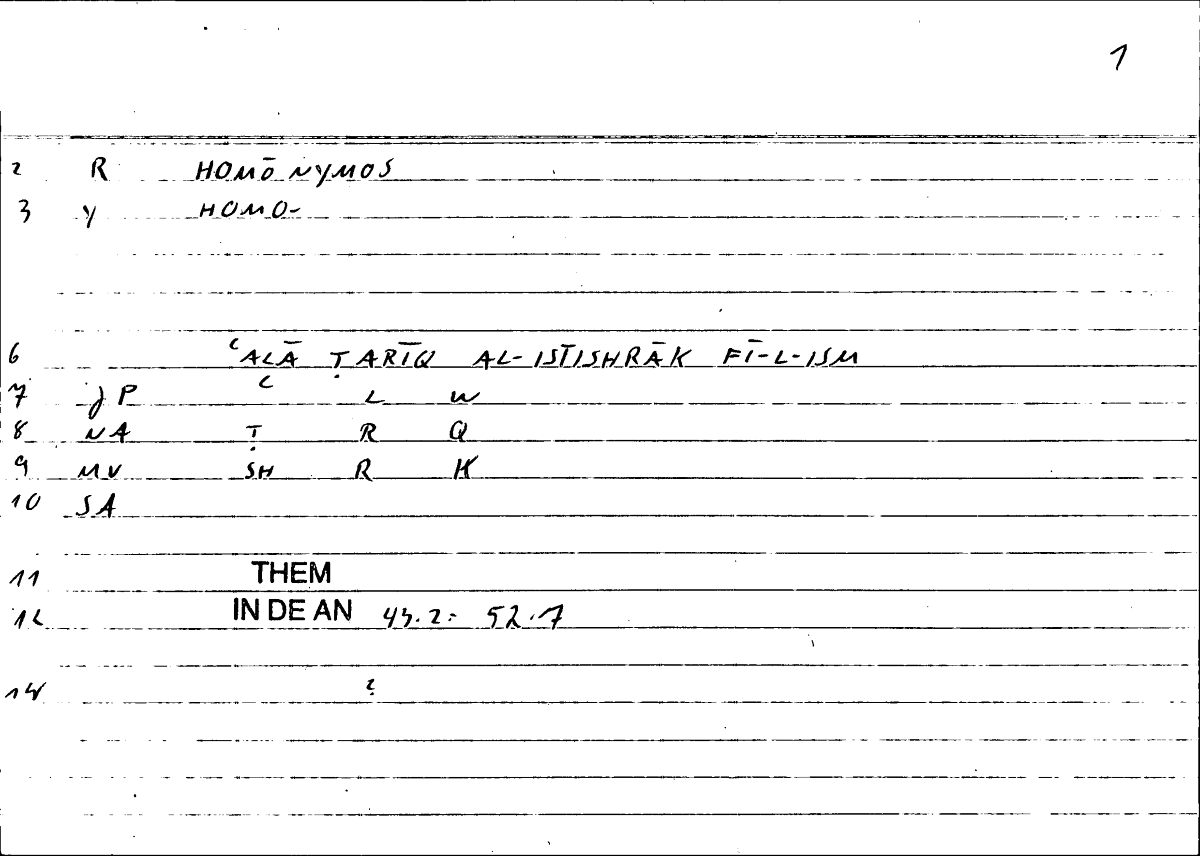 1
2 R HOMŌNYMOS
3 Y HOMO-
6 ʿALĀ ṬARĪQ AL-ISTISHRĀK FĪ-L-ISM
7 JP ʿ L W
8 NA Ṭ R Q
9 MV SH R K
10 SA
11 THEM
12 IN DE AN 43.2: 52.7
14 2